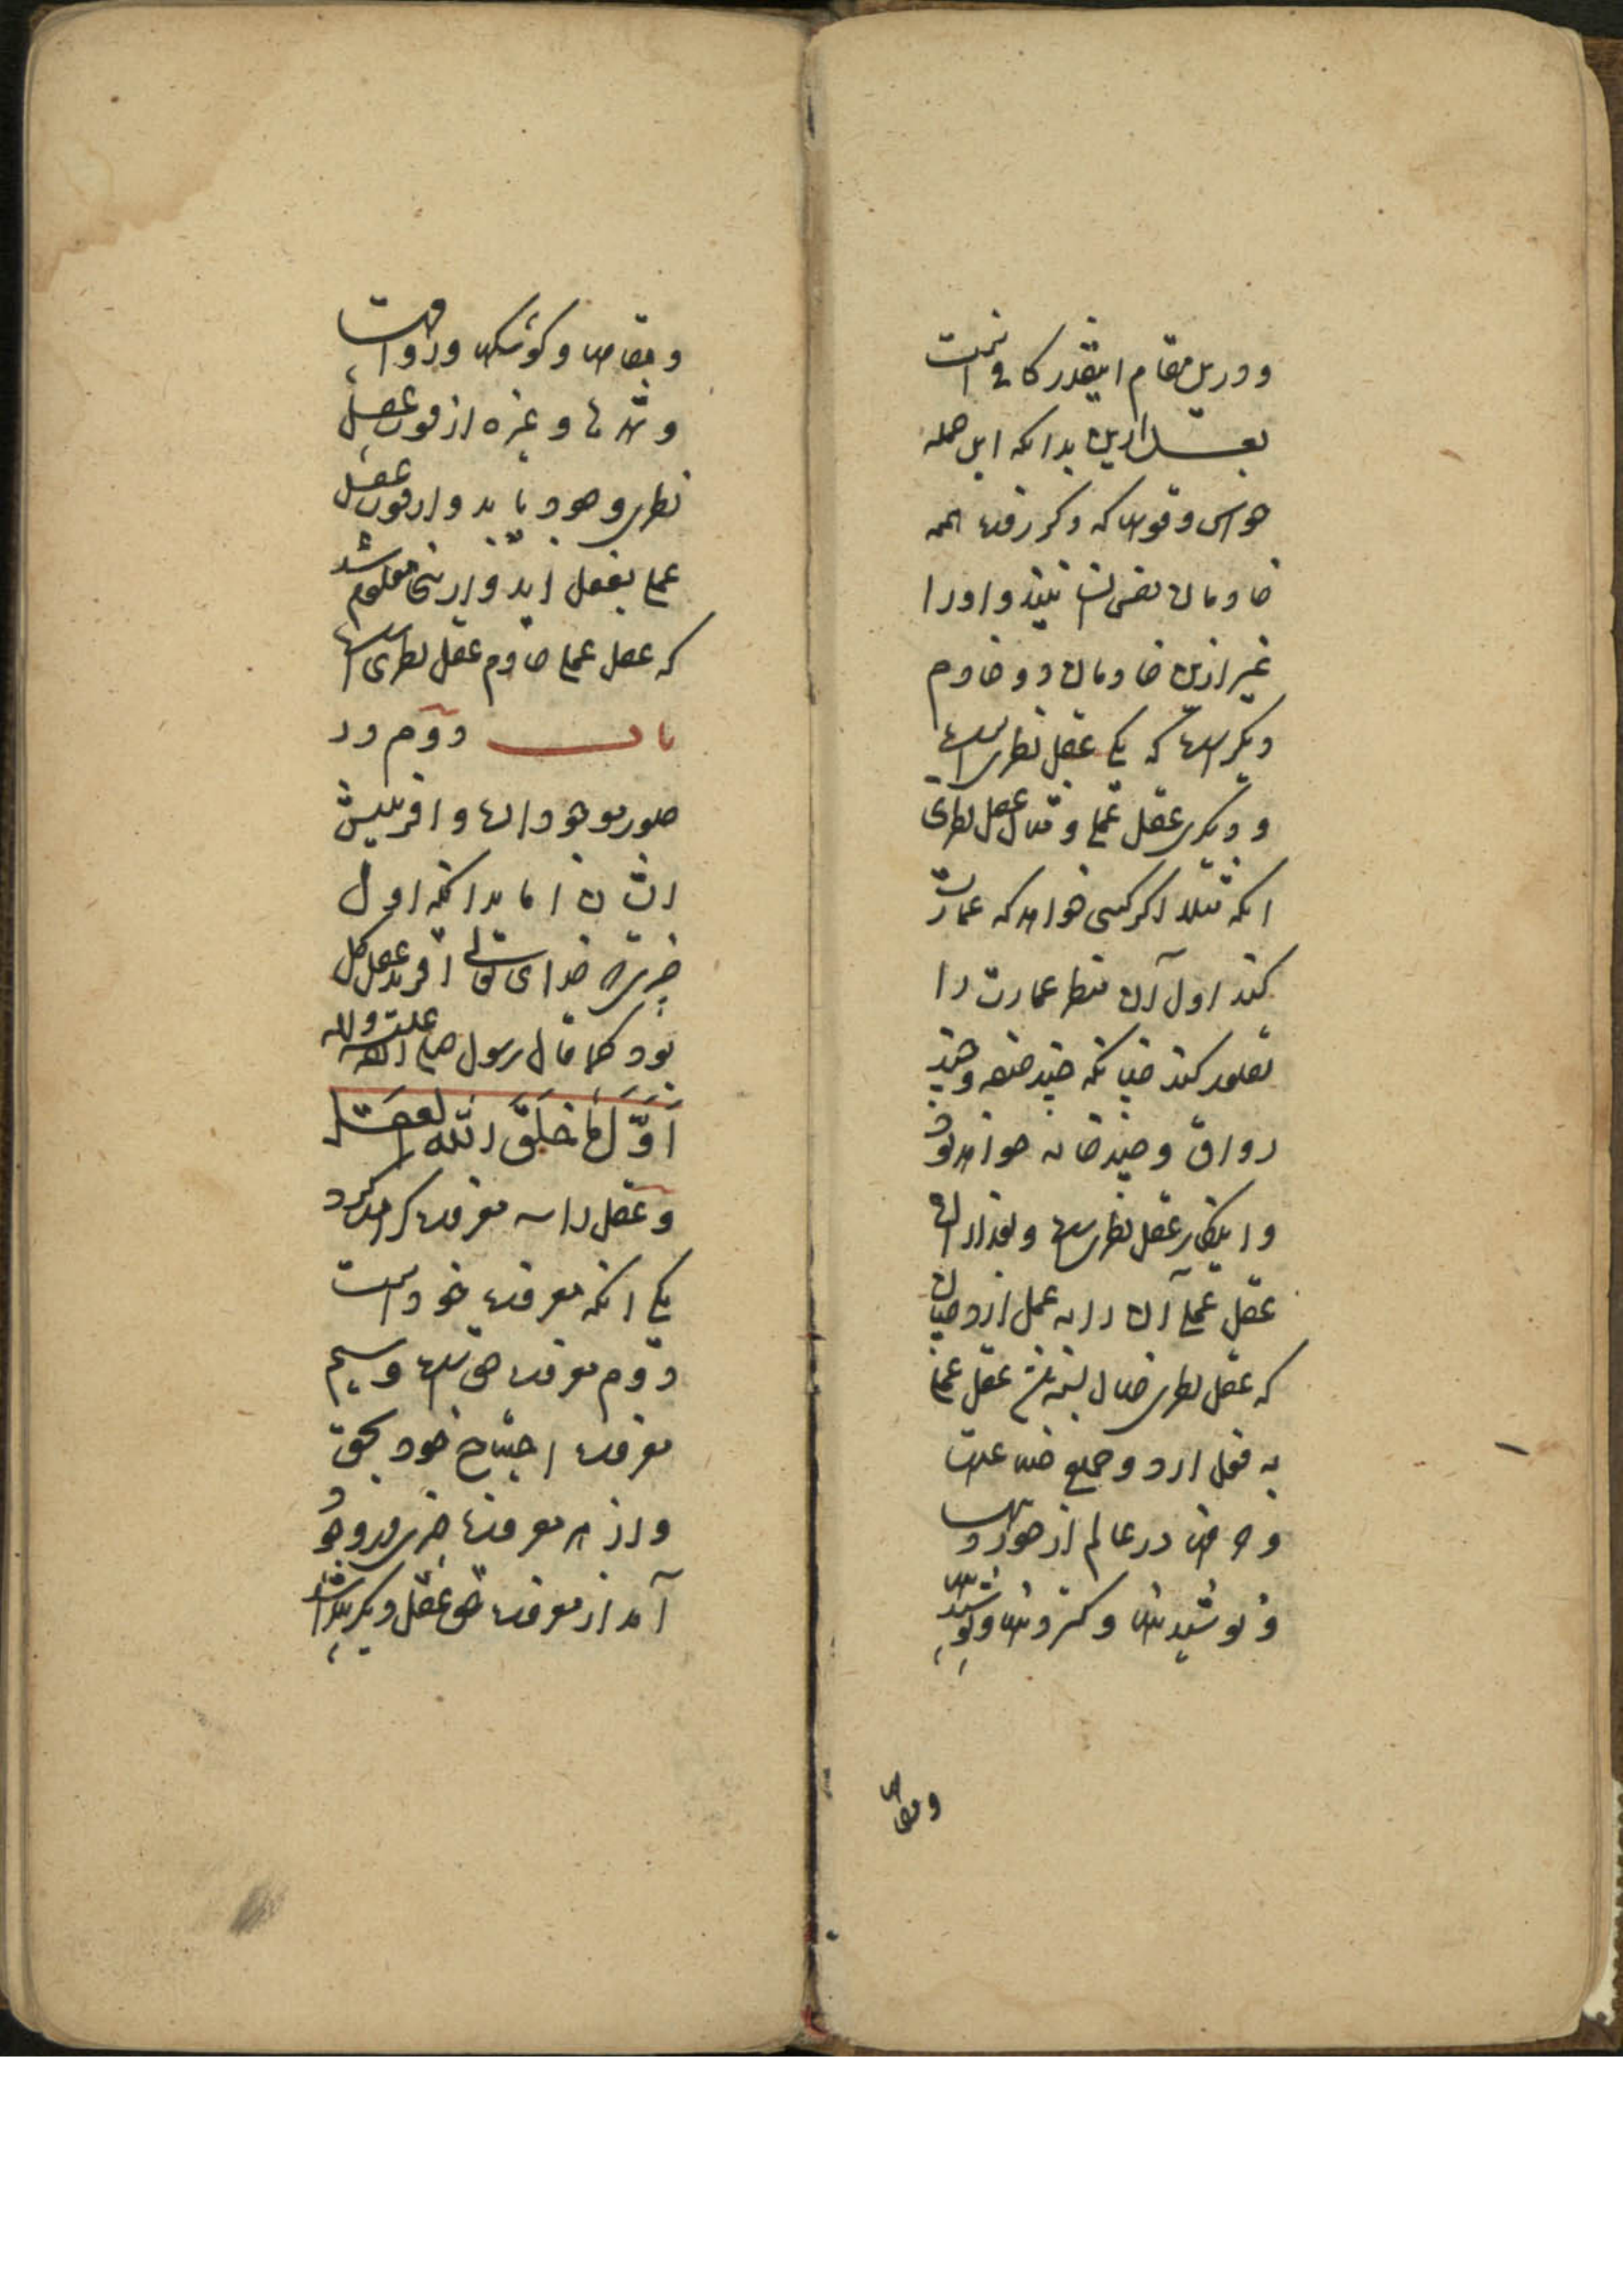 و درین مقام اینقدر کافیست
بعد ازین بدانکه این جمله
حواس و قوی که ذکر رفت همه
خادمان نفس انسانیند و او را
غیر ازین خادمان دو خادم
دیگر است که یکی عقل نظری است
و دیگری عقل عملی و مثال عقل نظری
انکه مثلا اکر کسی خواهد که عمارت
کند اول آن منظر عمارت را
تصور کند چنانکه چند صفه و چند
رواق و چند خانه خواهد بود
و اینکار عقل نظریست و بعد از ان
عقل عملی آن را به عمل ارد چنان
که عقل نظری خیال بسته عقل عملی
به فعل ارد و جمیع صناعات
و حرف در عالم از خوردنیها
و نوشیدنی و کستردنی و پوشیدنی
و مقامی
و مقامی و کوشک و رواقها
و شهرها و غیره از قوت عقل
نظری وجود یابد و از قوت عقل
عملی بفعل اید و ازینجا معلوم شد
که عقل عملی خادم عقل نظری است
باب دوم در
صور موجودات و افرینش
انسان اما بدانکه اول
چیزی که خدای تعالی افرید عقل کل
بود کما قال رسول صلی الله علیه و اله
اَوَّلُ مَا خَلَقَ اللّه العقل
و عقل را سه معرفت کرامت کرد
یکی انکه معرفت خود است
دوم معرفت حق است و سیم
معرفت احتیاج خود بحق
و از هر معرفت چیزی در وجود
آمد از معرفت حق عقل دیکر پیدا شد